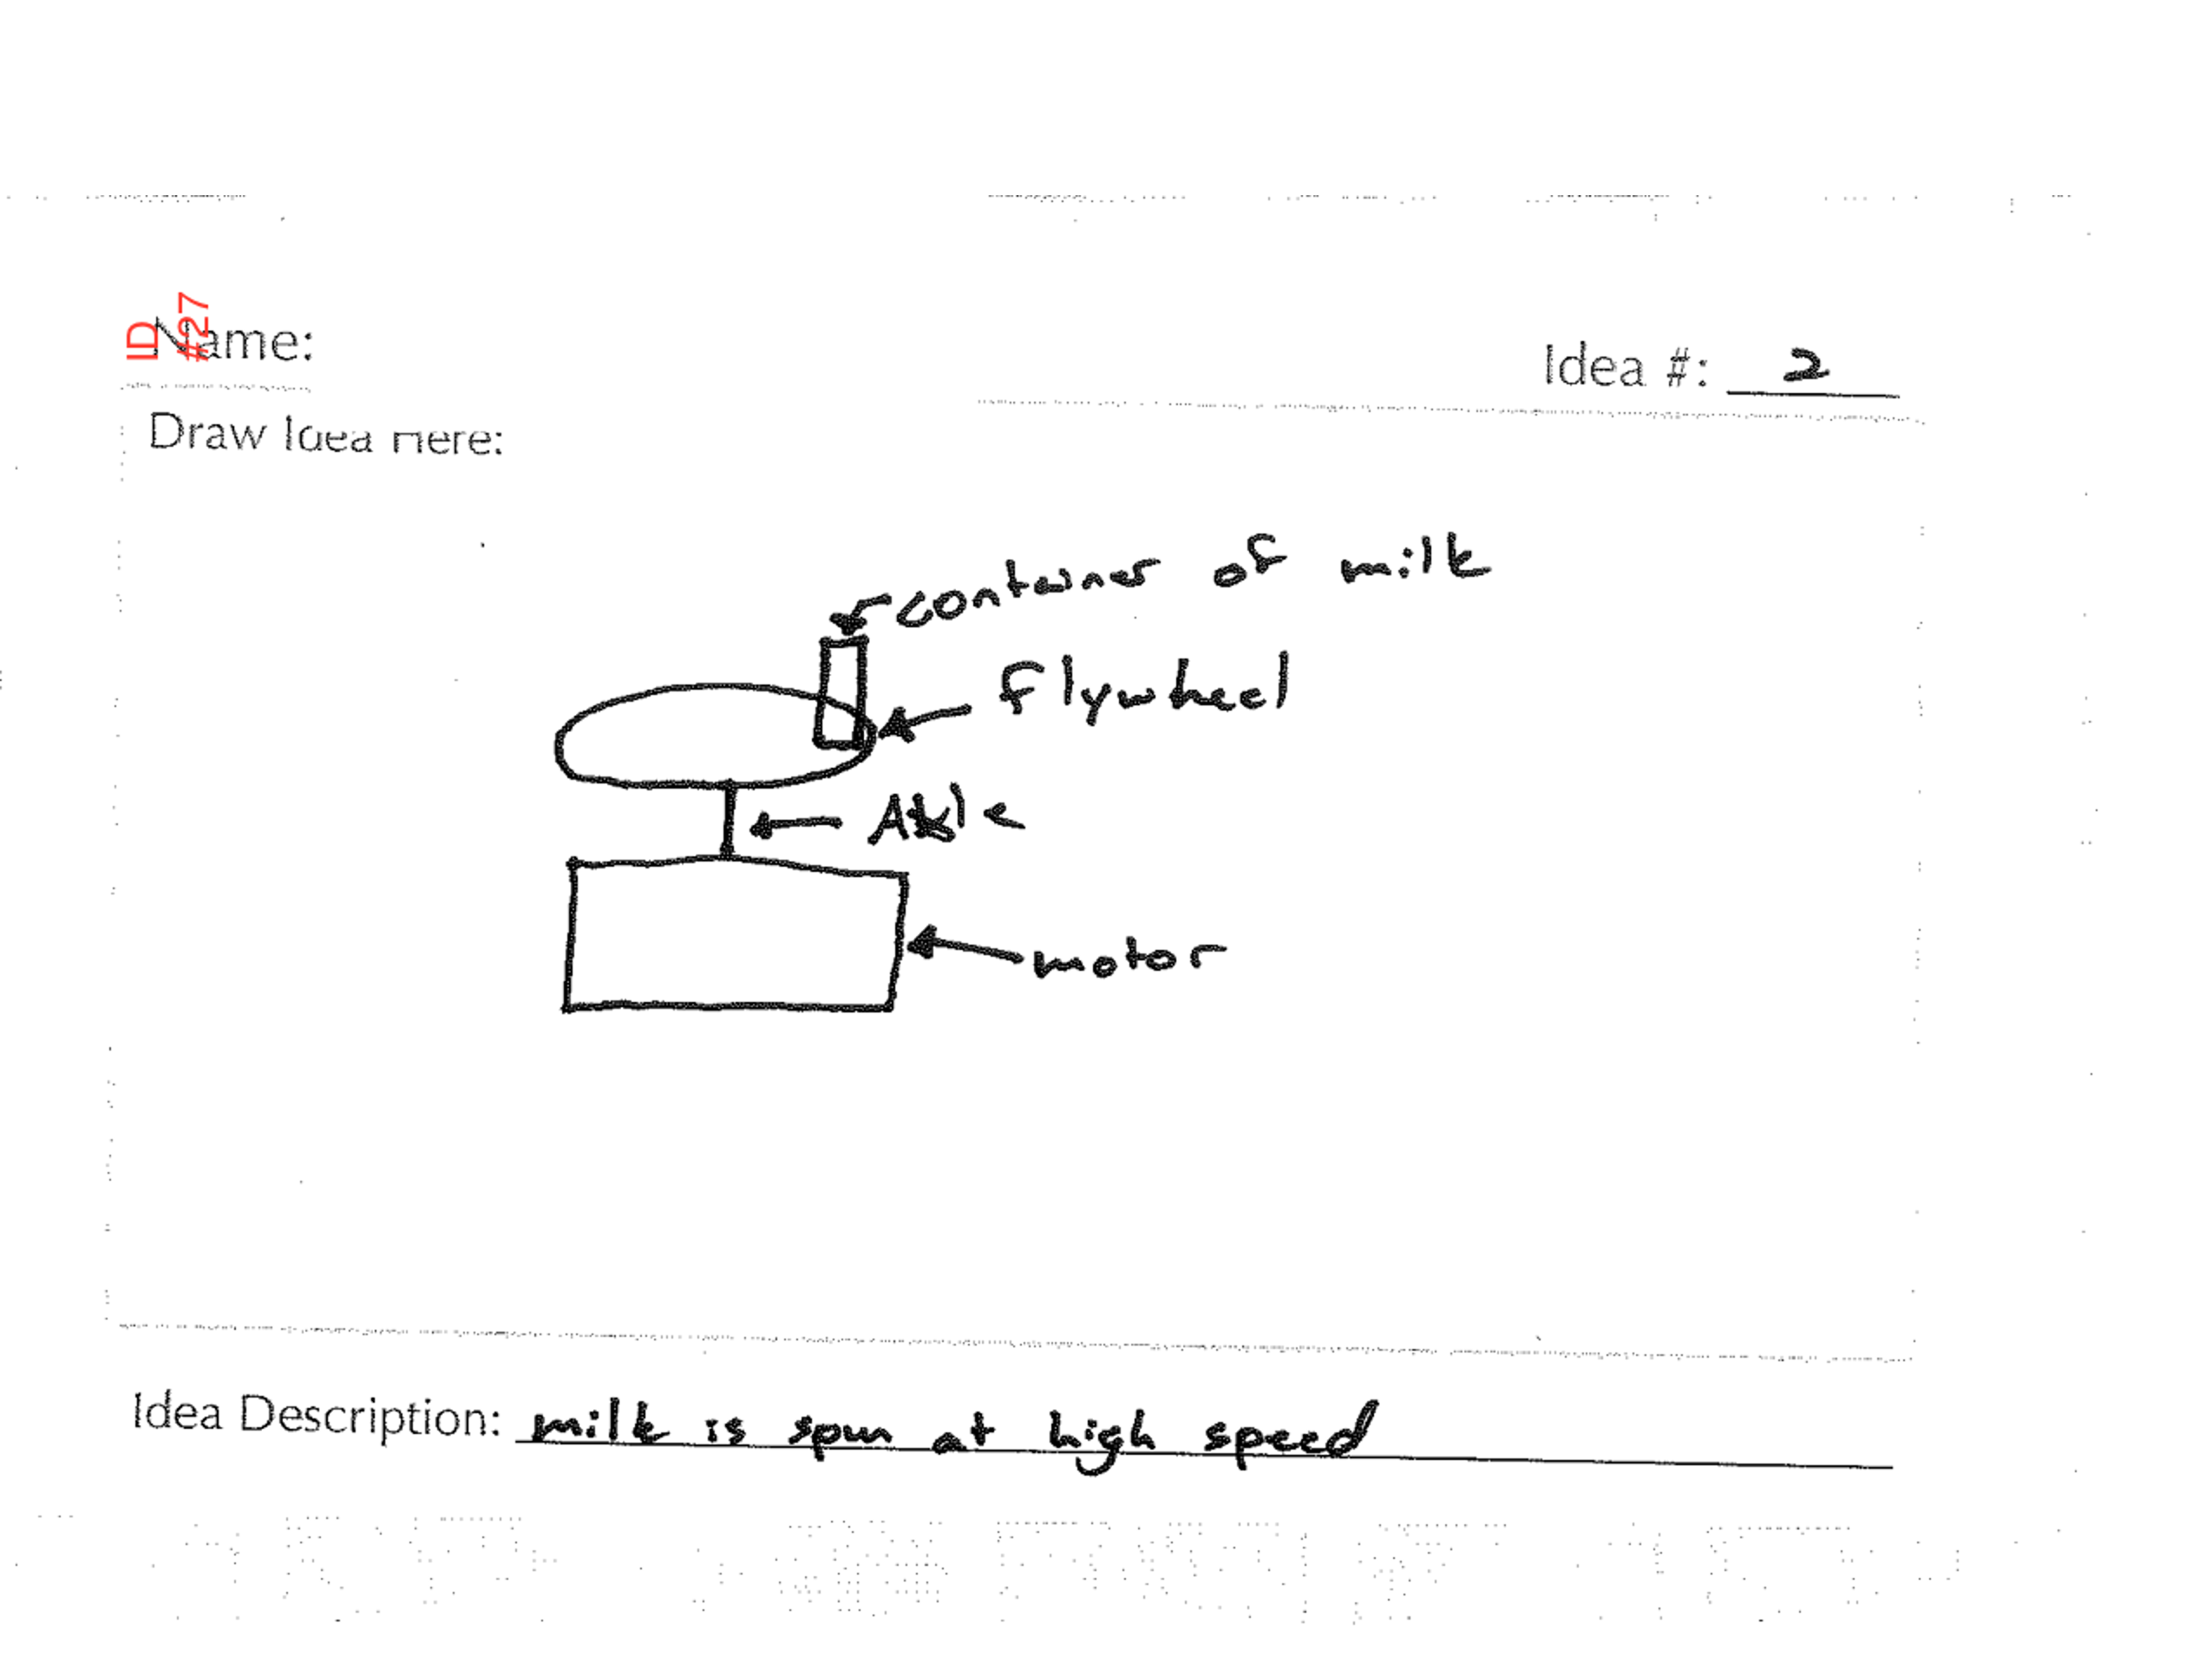 ID
#27
Name:
Idea #: 2
Draw Idea Here:
container of milk
flywheel
Axle
motor
Idea Description: milk is spun at high speed